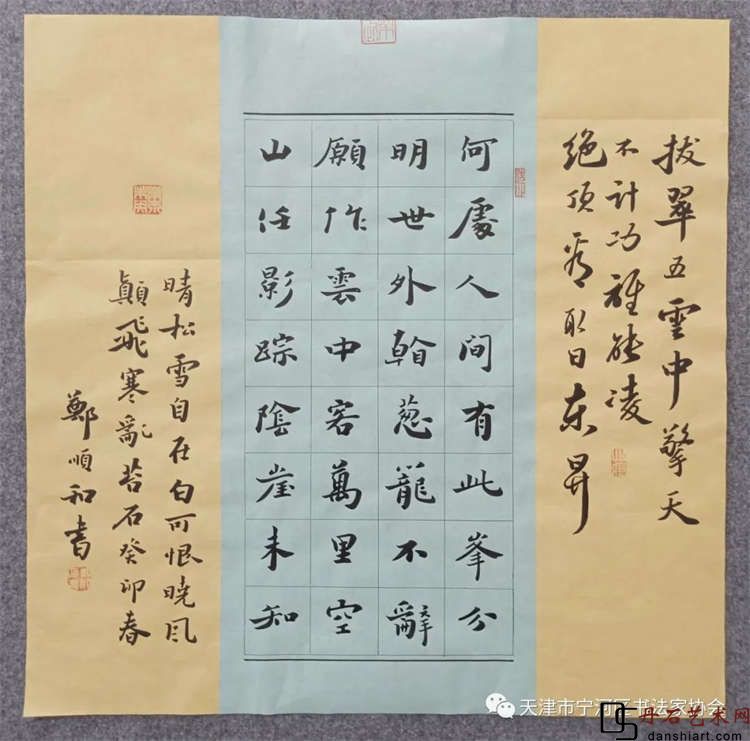 拔翠五雲中擎天
不計功誰能凌
絕頂看取日東昇
何處人間有此峯分
明世外翰葱籠不辭
願作雲中客萬里空
山任影踪陰崖未知
晴松雪自在白可恨曉風
顛飛寒亂苔石癸卯春
鄭順和書
天津市宁河区书法家协会
丹石艺术网
danshiart.com